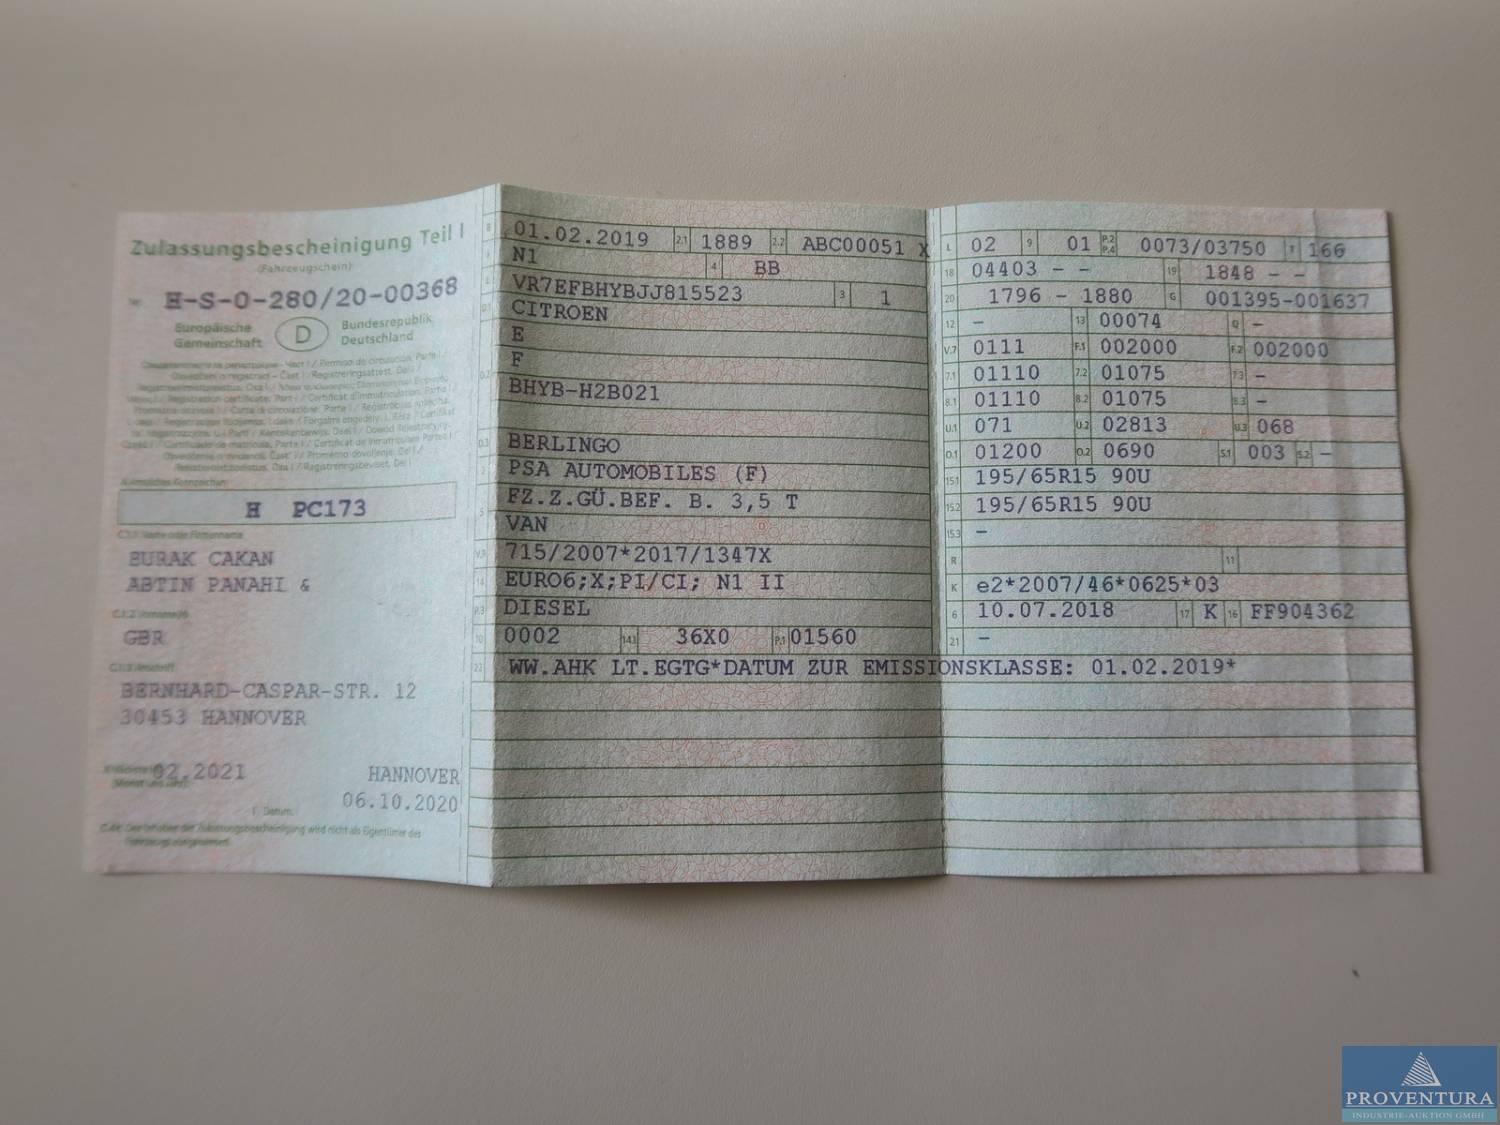 Zulassungsbescheinigung Teil I
(Fahrzeugschein)
Nr. H-S-0-280/20-00368
Europäische Gemeinschaft
D
Bundesrepublik Deutschland
H PC173
BURAK CAKAN
ABTIN PANAHI &
GBR
BERNHARD-CASPAR-STR. 12
30453 HANNOVER
02.2021
HANNOVER
06.10.2020
B 01.02.2019 2.1 1889 2.2 ABC00051 X
N1 4 BB
VR7EFBHYBJJ815523 3 1
CITROEN
E
F
BHYB-H2B021
D.3 BERLINGO
2 PSA AUTOMOBILES (F)
5 FZ.Z.GÜ.BEF. B. 3,5 T
VAN
V.9 715/2007*2017/1347X
14 EURO6;X;PI/CI; N1 II
P.3 DIESEL
10 0002 14.1 36X0 P.1 01560
22 WW.AHK LT.EGTG*DATUM ZUR EMISSIONSKLASSE: 01.02.2019*
L 02 9 01 P.2 P.4 0073/03750 T 166
18 04403 - - 19 1848 - -
20 1796 - 1880 G 001395-001637
12 - 13 00074 Q -
V.7 0111 F.1 002000 F.2 002000
7.1 01110 7.2 01075 7.3 -
8.1 01110 8.2 01075 8.3 -
U.1 071 U.2 02813 U.3 068
O.1 01200 O.2 0690 S.1 003 S.2 -
15.1 195/65R15 90U
15.2 195/65R15 90U
15.3 -
R 11
K e2*2007/46*0625*03
6 10.07.2018 17 K 16 FF904362
21 -
PROVENTURA
INDUSTRIE-AUKTION GMBH